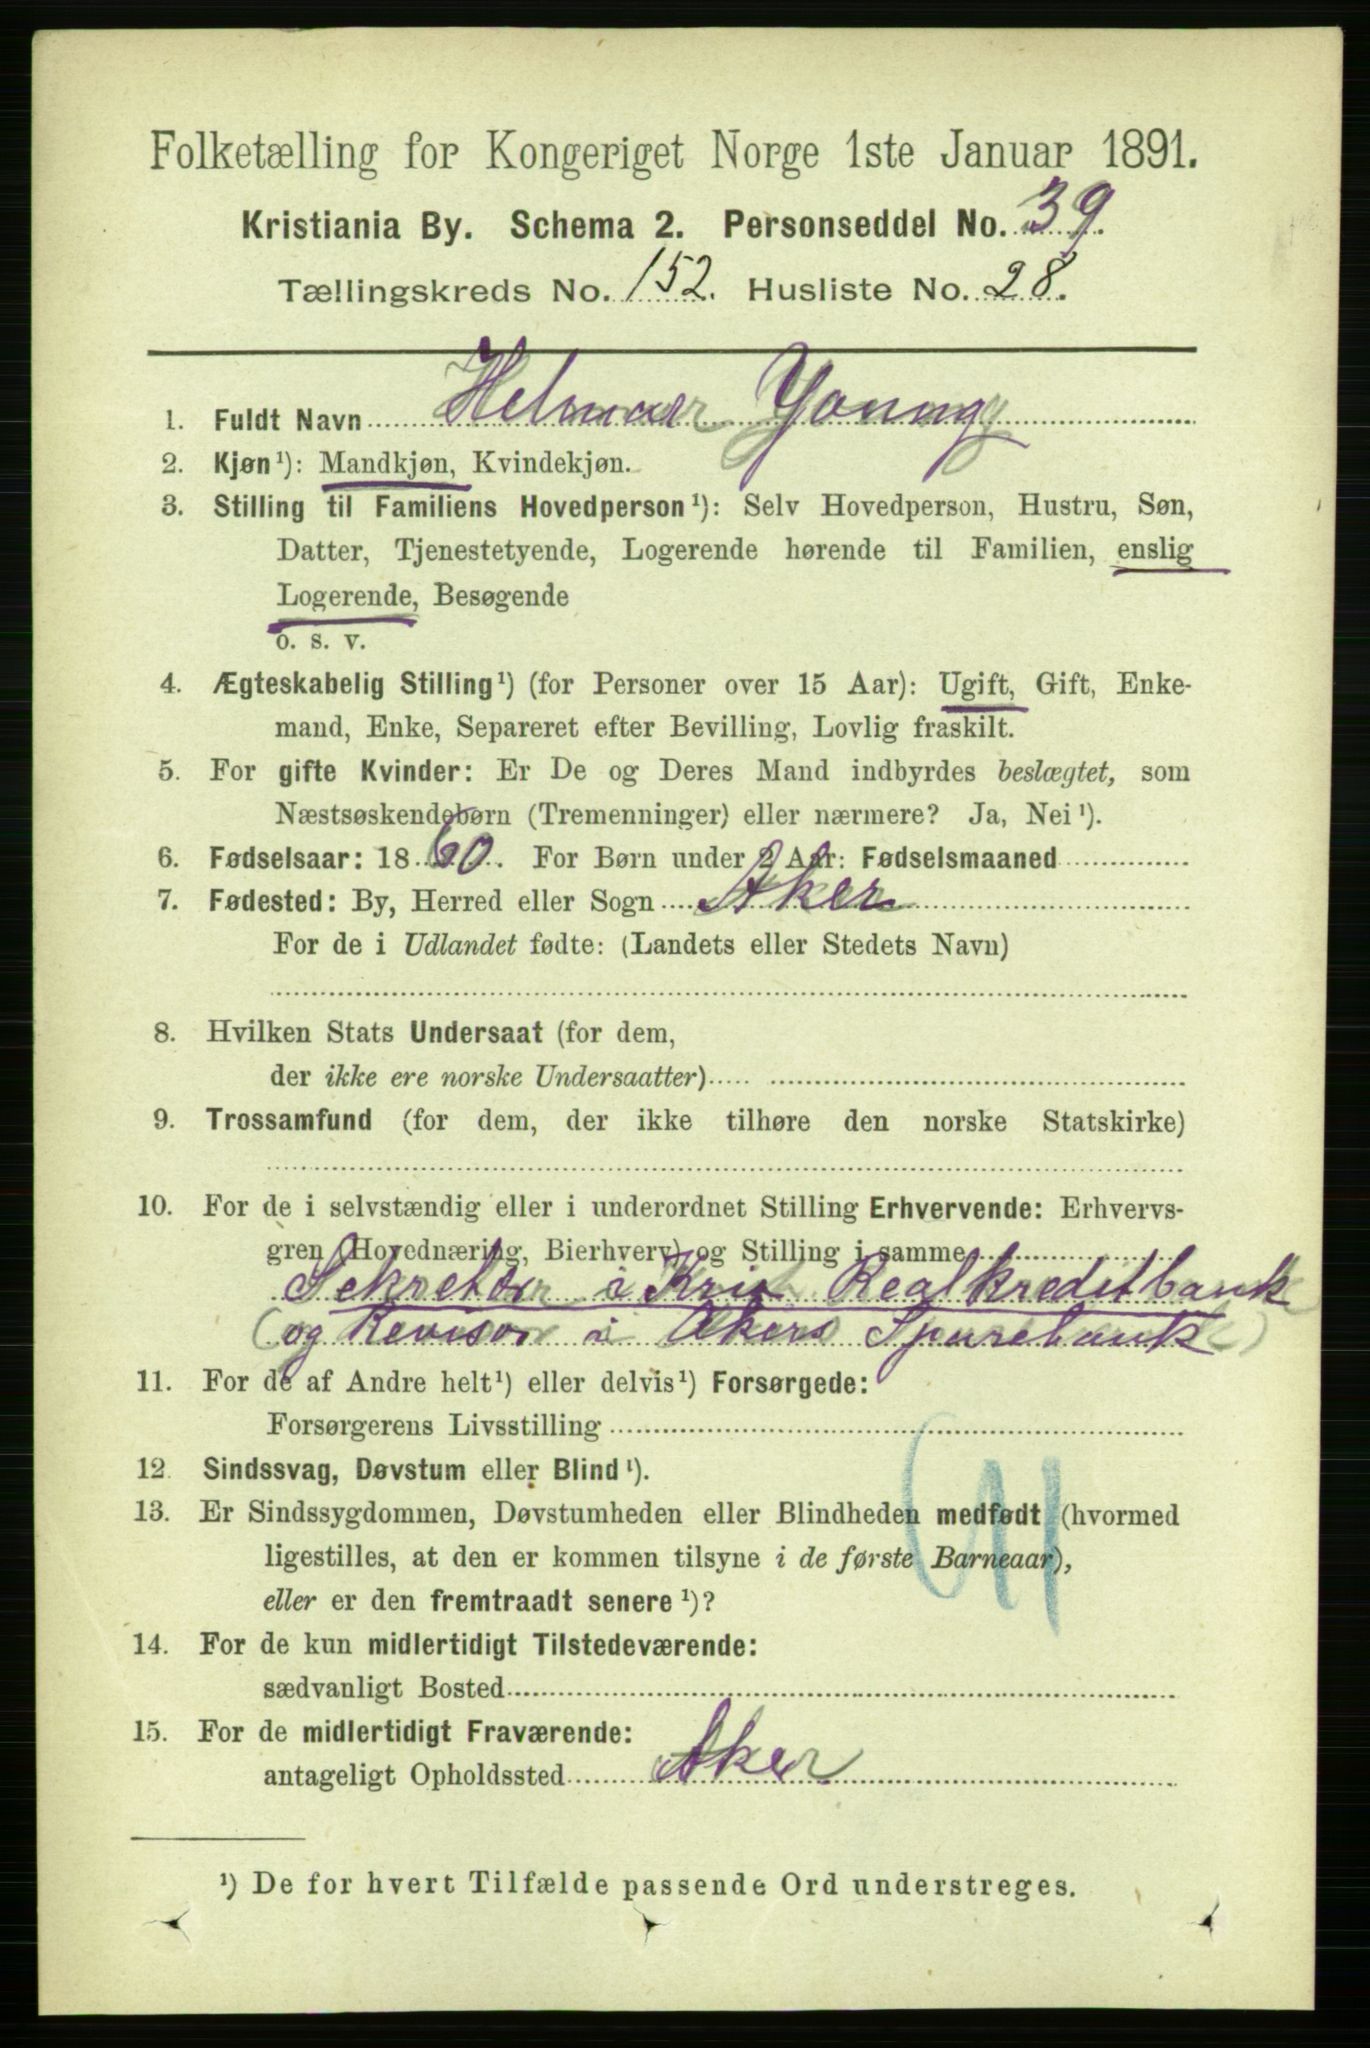 Folketælling for Kongeriget Norge 1ste Januar 1891.
Kristiania By. Schema 2. Personseddel No. 39.
Tællingskreds No. 152. Husliste No. 28.
1. Fuldt Navn Helmar Young
2. Kjøn¹): Mandkjøn, Kvindekjøn.
3. Stilling til Familiens Hovedperson¹): Selv Hovedperson, Hustru, Søn,
Datter, Tjenestetyende, Logerende hørende til Familien, enslig
Logerende, Besøgende
o. s. v.
4. Ægteskabelig Stilling¹) (for Personer over 15 Aar): Ugift, Gift, Enke-
mand, Enke, Separeret efter Bevilling, Lovlig fraskilt.
5. For gifte Kvinder: Er De og Deres Mand indbyrdes beslægtet, som
Næstsøskendebørn (Tremenninger) eller nærmere? Ja, Nei¹).
6. Fødselsaar: 1860. For Børn under 2 Aar: Fødselsmaaned
7. Fødested: By, Herred eller Sogn Aker
For de i Udlandet fødte: (Landets eller Stedets Navn)
8. Hvilken Stats Undersaat (for dem,
der ikke ere norske Undersaatter)
9. Trossamfund (for dem, der ikke tilhøre den norske Statskirke)
10. For de i selvstændig eller i underordnet Stilling Erhvervende: Erhvervs-
gren (Hovednæring, Bierhverv) og Stilling i samme
Sekretær i Krist Realkreditbank
(og Revisor i Akers Sparebank)
11. For de af Andre helt¹) eller delvis¹) Forsørgede:
Forsørgerens Livsstilling
12. Sindssvag, Døvstum eller Blind¹).
13. Er Sindssygdommen, Døvstumheden eller Blindheden medfødt (hvormed
ligestilles, at den er kommen tilsyne i de første Barneaar),
eller er den fremtraadt senere¹)?
14. For de kun midlertidigt Tilstedeværende:
sædvanligt Bosted
15. For de midlertidigt Fraværende:
antageligt Opholdssted Aker
¹) De for hvert Tilfælde passende Ord understreges.